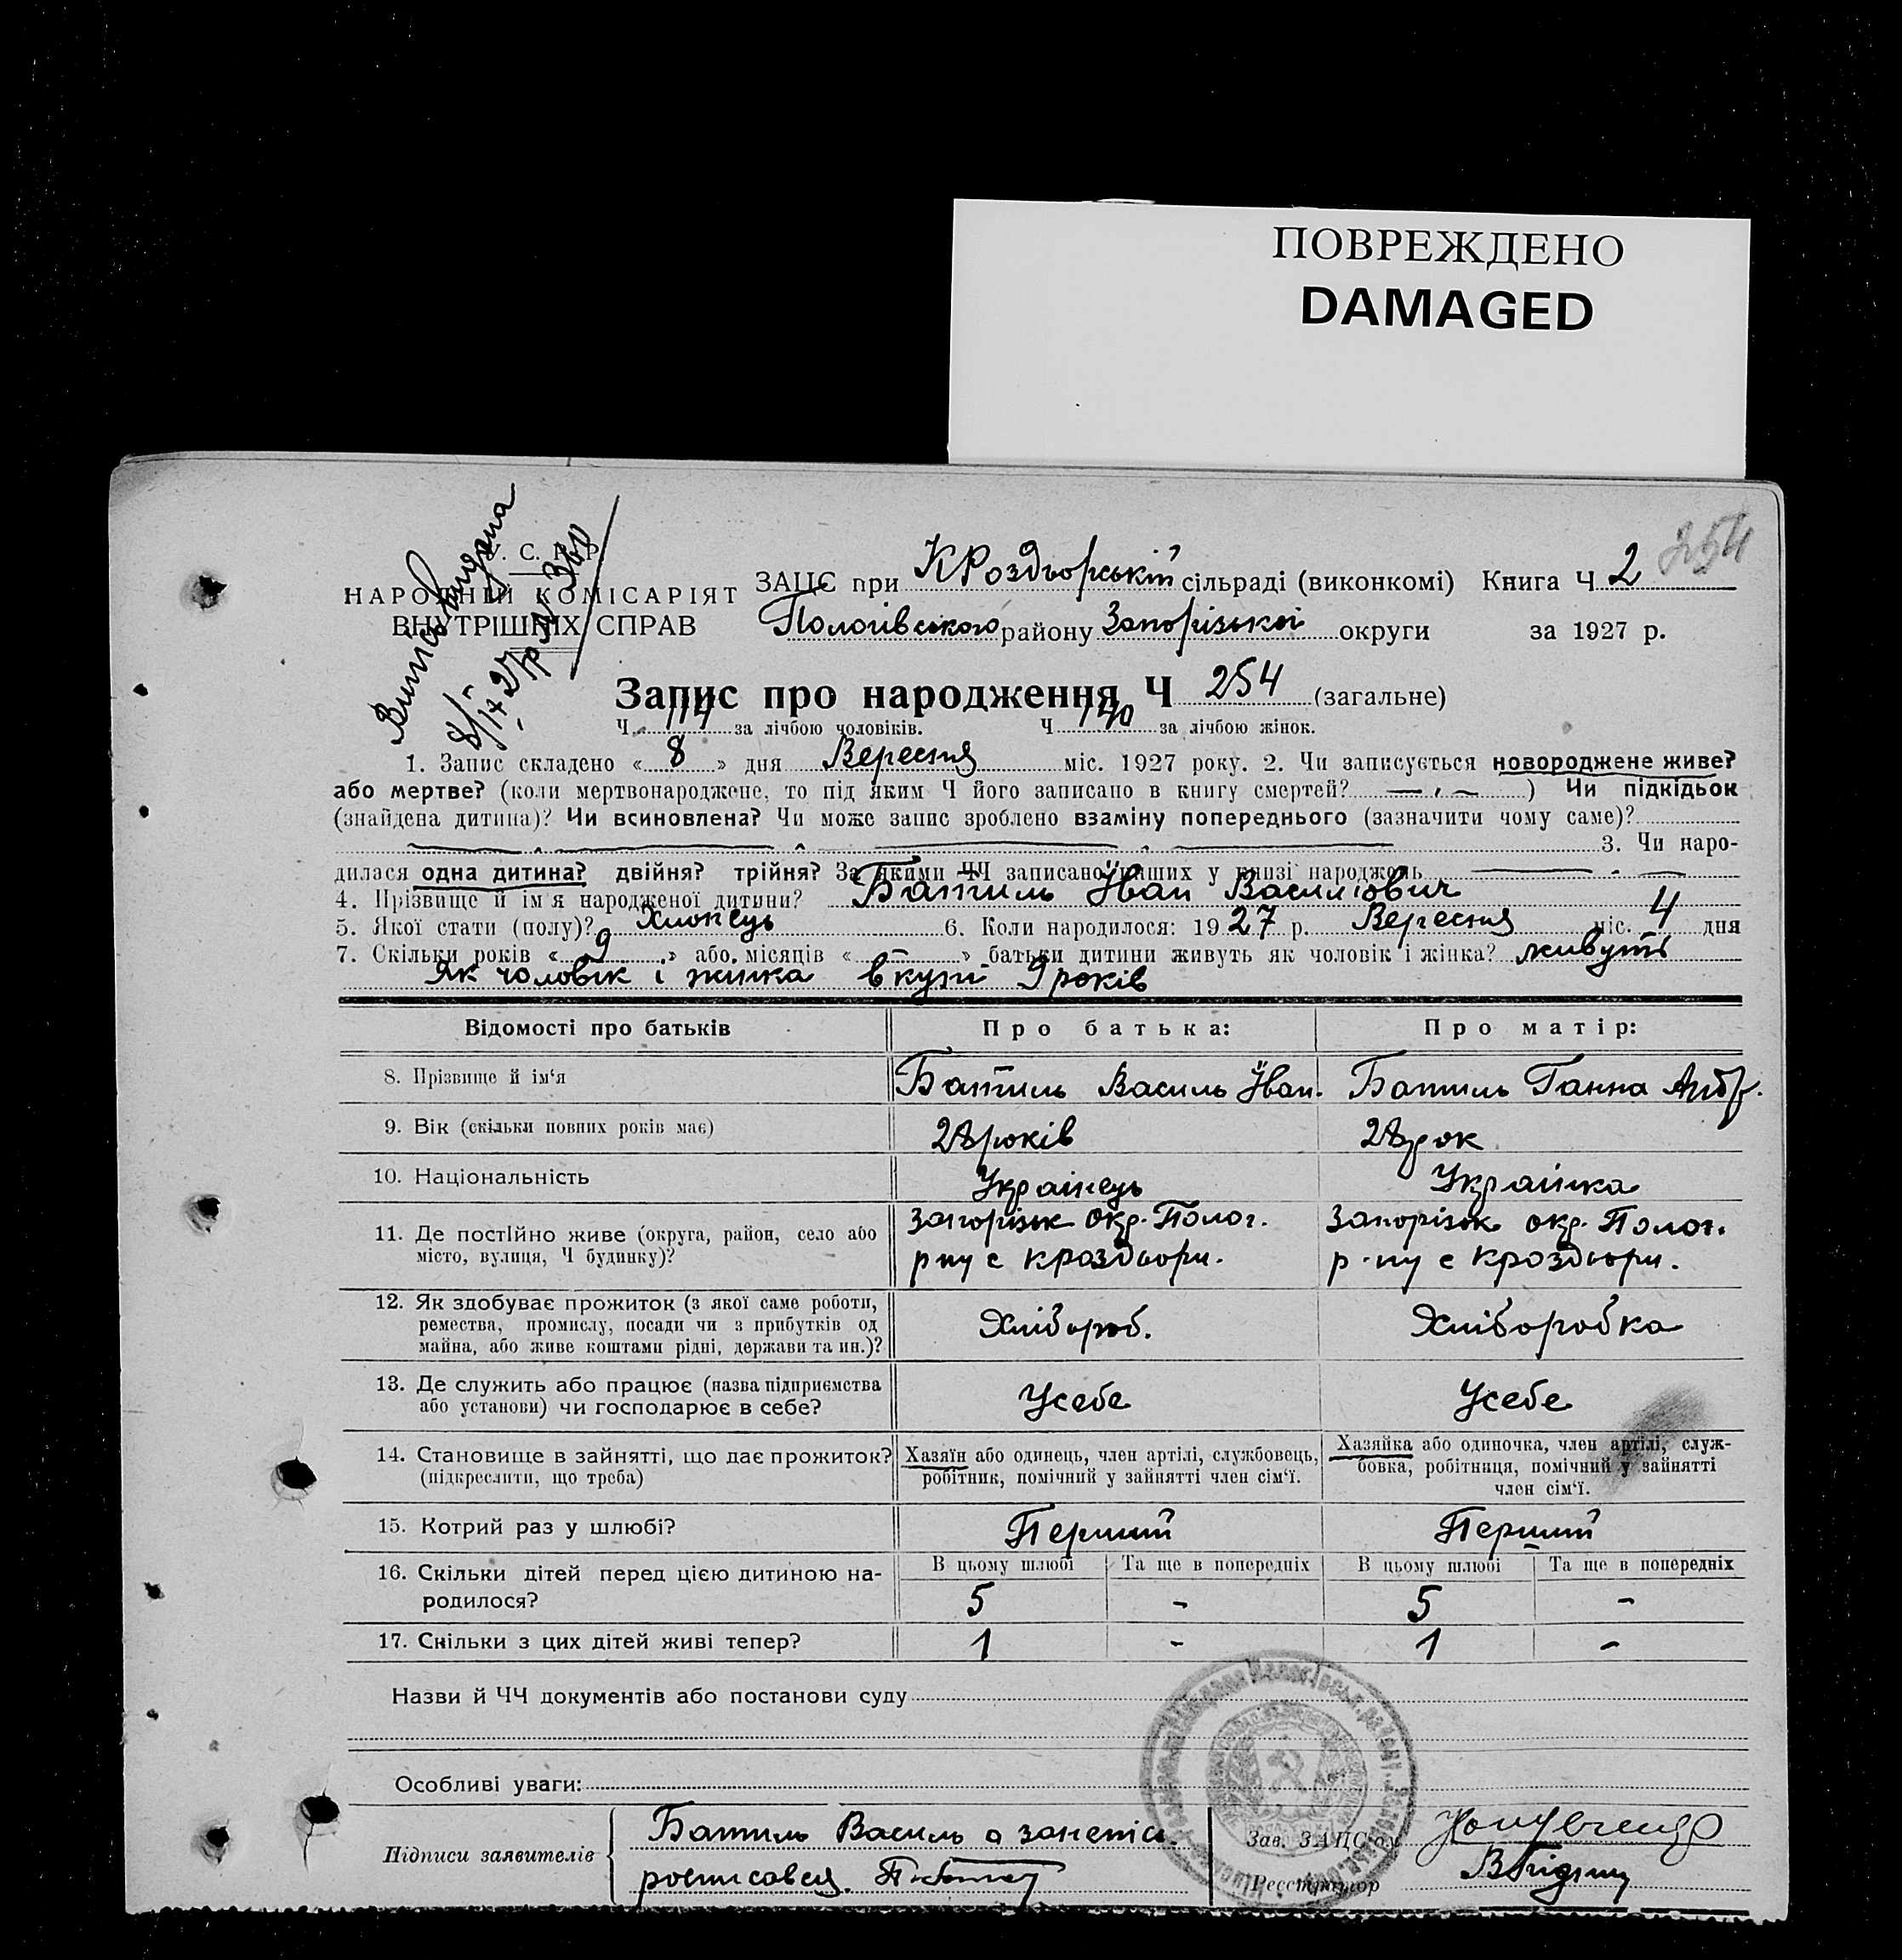 ПОВРЕЖДЕНО
DAMAGED
254
Випись видана
У. С. Р. Р.
НАРОДНІЙ КОМІСАРІЯТ
ВНУТРІШНІХ СПРАВ
ЗАЦС при КРоздорській сільраді (виконкомі) Книга Ч 2
Пологівського району Запорізької округи за 1927 р.
Запис про народження Ч 254 (загальне)
Ч 114 за лічбою чоловіків. Ч 140 за лічбою жінок.
1. Запис складено « 8 » дня Вересня міс. 1927 року. 2. Чи записується новороджене живе?
або мертве? (коли мертвонароджене, то під яким Ч його записано в книгу смертей? — ) Чи підкідьок
(знайдена дитина)? Чи всиновлена? Чи може запис зроблено взаміну попереднього (зазначити чому саме)?
3. Чи наро-
дилася одна дитина? двійня? трійня? За якими ЧЧ записано інших у книзі народжень —
4. Прізвище й ім'я народженої дитини? Батиль Іван Васильович
5. Якої стати (полу)? Хлопець 6. Коли народилося: 1927 р. Вересня міс. 4 дня
7. Скільки років « 9 » або місяців « — » батьки дитини живуть як чоловік і жінка? живуть
Як чоловік і жинка вкупі 9 років
Відомості про батьків Про батька: Про матір:
8. Прізвище й ім'я Батиль Василь Іван. Батиль Ганна
9. Вік (скільки повних років має) 28 років 28 рок
10. Національність Українець Українка
11. Де постійно живе (округа, район, село або Запорізьк окр. Полог. Запорізьк окр. Полог.
місто, вулиця, Ч будинку)? р ну с Кроздори. р-ну с Кроздори.
12. Як здобуває прожиток (з якої саме роботи,
ремества, промислу, посади чи з прибутків од Хлібороб. Хліборобка
майна, або живе коштами рідні, держави та ин.)?
13. Де служить або працює (назва підприємства Усебе Усебе
або установи) чи господарює в себе?
14. Становище в зайнятті, що дає прожиток? Хазяїн або одинець, член артілі, службовець, Хазяйка або одиночка, член артілі, служ-
(підкреслити, що треба) робітник, помічний у зайнятті член сім'ї. бовка, робітниця, помічний у зайнятті
член сім'ї.
15. Котрий раз у шлюбі? Перший Перший
16. Скільки дітей перед цією дитиною на- В цьому шлюбі Та ще в попередніх В цьому шлюбі Та ще в попередніх
родилося? 5 - 5 -
17. Скільки з цих дітей живі тепер? 1 - 1 -
Назви й ЧЧ документів або постанови суду
Особливі уваги:
Підписи заявителів Батиль Василь а
росписався.
Зав. ЗАЦС'ом
Реєстратор